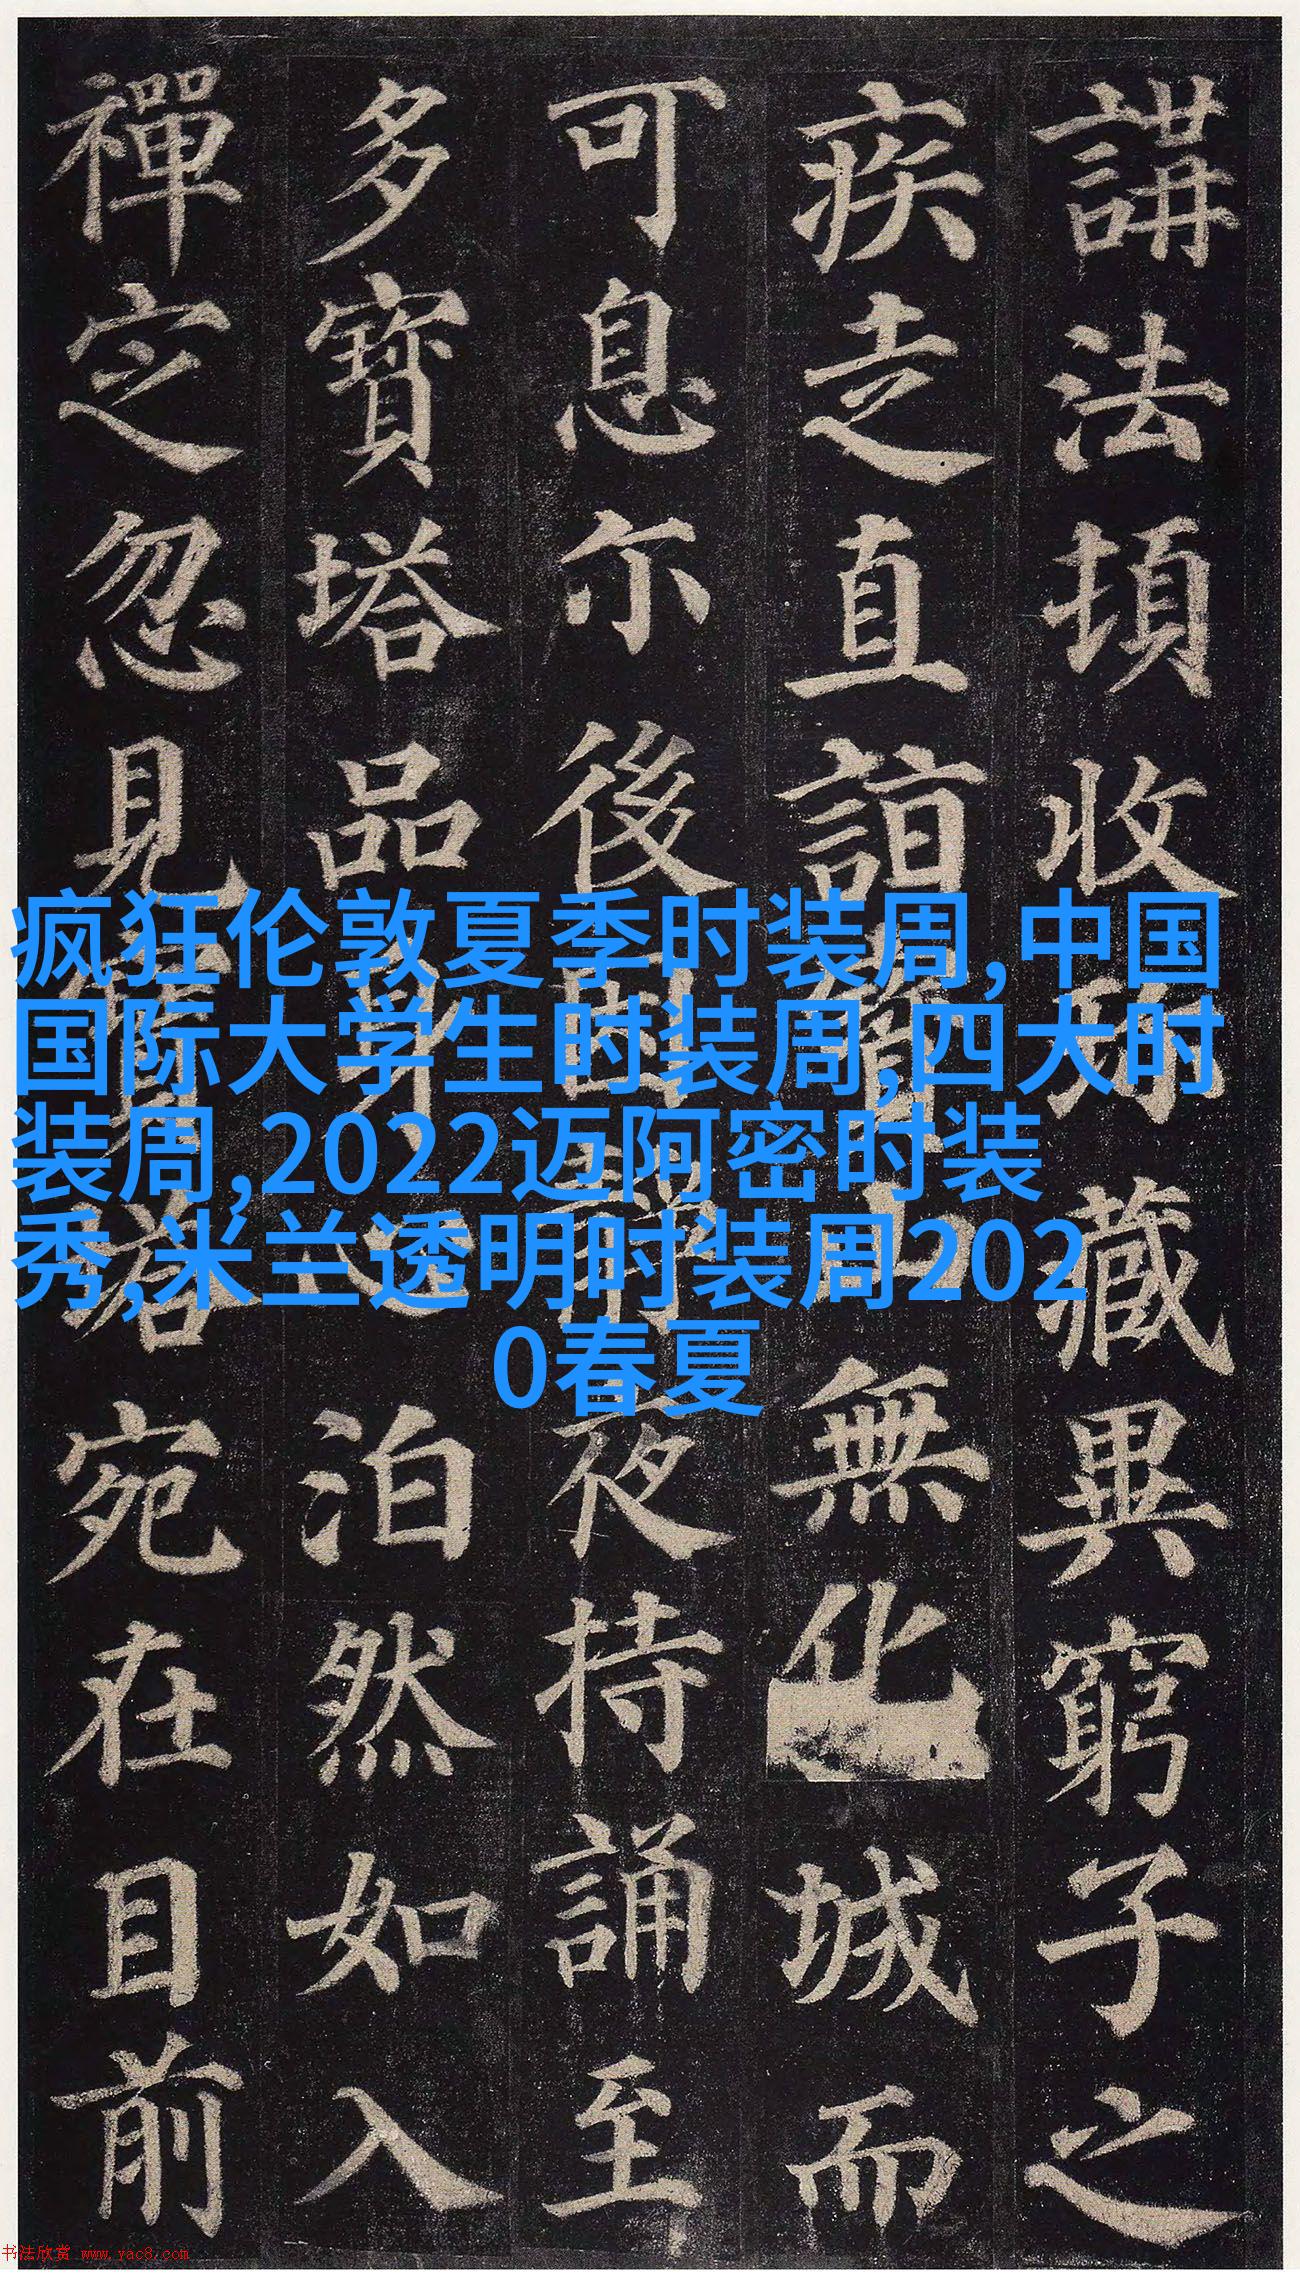 講法頓收珎藏異窮子之
疾走直詣寶山無化城而
可息尔後因靜夜持誦至
多寶塔品身心泊然如入
禪定忽見寶塔宛在目前
疯狂伦敦夏季时装周,中国
国际大学生时装周,四大时
装周,2022迈阿密时装
秀,米兰透明时装周202
0春夏
书法欣赏 www.yac8.com